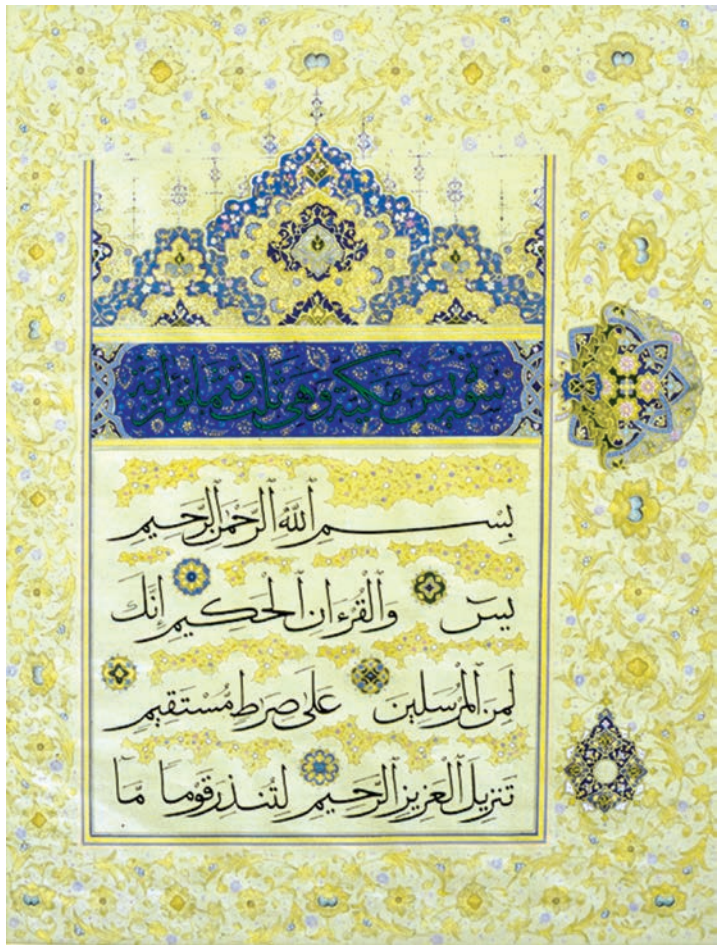 سورة يس مكية وهي ثلث وثمانون آية
بِسْمِ ٱللَّهِ ٱلرَّحْمَٰنِ ٱلرَّحِيمِ
يسٓ وَٱلْقُرْءَانِ ٱلْحَكِيمِ إِنَّكَ
لَمِنَ ٱلْمُرْسَلِينَ عَلَىٰ صِرَٰطٍ مُّسْتَقِيمٍ
تَنزِيلَ ٱلْعَزِيزِ ٱلرَّحِيمِ لِتُنذِرَ قَوْمًا مَّآ